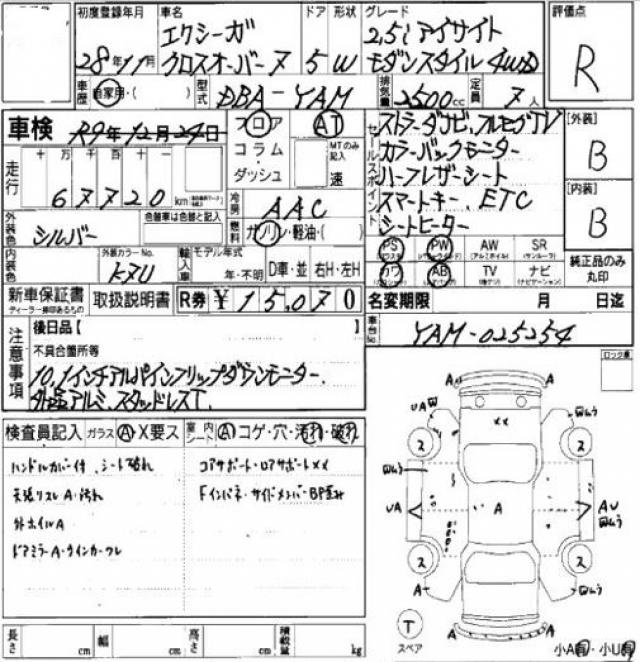 初度登録年月 車名 ドア 形状 グレード 評価点
28年11月 エクシーガ クロスオーバー7 5 W 2,5i アイサイト
モダンスタイル 4WD R
車歴 自家用・( ) 型式 DBA-YAM 排気量 2500cc 定員 7人
車検 R9年12月24日 フロア AT
コラム・ダッシュ MTのみ記入 速
走行 十 万 千 百 十 一
67720 km
セールスポイント
ストラーダナビ、フルセグTV
カラーバックモニター
ハーフレザーシート
スマートキー、ETC
シートヒーター
[外装] B
[内装] B
冷房 AAC
外装色 シルバー 色替車は色替と記入 燃料 ガソリン・軽油・( )
内装色 外装カラーNo. K7U 輸入車 モデル年式 年・不明 D車・並 右H・左H
PS PW AW SR
(パワステ) (パワーウインドウ) (アルミホイル) (サンルーフ)
カワ AB TV ナビ
(エアバック) (ナビゲーション)
純正品のみ丸印
新車保証書 取扱説明書 R券 ¥15,070 名変期限 月 日迄
ディーラー捺印あるもの
注意事項 後日品【
車台No. YAM-025254
不具合箇所等
10.1インチアルパインフリップダウンモニター、
外品アルミ、スタッドレスT、
ロック車
検査員記入 ガラス A・X要ス 室内シート A コゲ・穴・汚れ・破れ
ハンドルカバー付、シート破れ コアサポート・ロアサポートXX
天張リスレA・汚れ Fインパネ・サイドメンバーBP歪み
外ホイルA
ドアミラーA・ウインカーワレ
A A
UAW 凹ムラ
XX
ス ス
凹ムラ
UA A AU
凹ムラ
ス ス
A 凹ムラ
T A A
スペア
小A有・小U有
長さ cm 幅 cm 高さ cm 積載量 kg